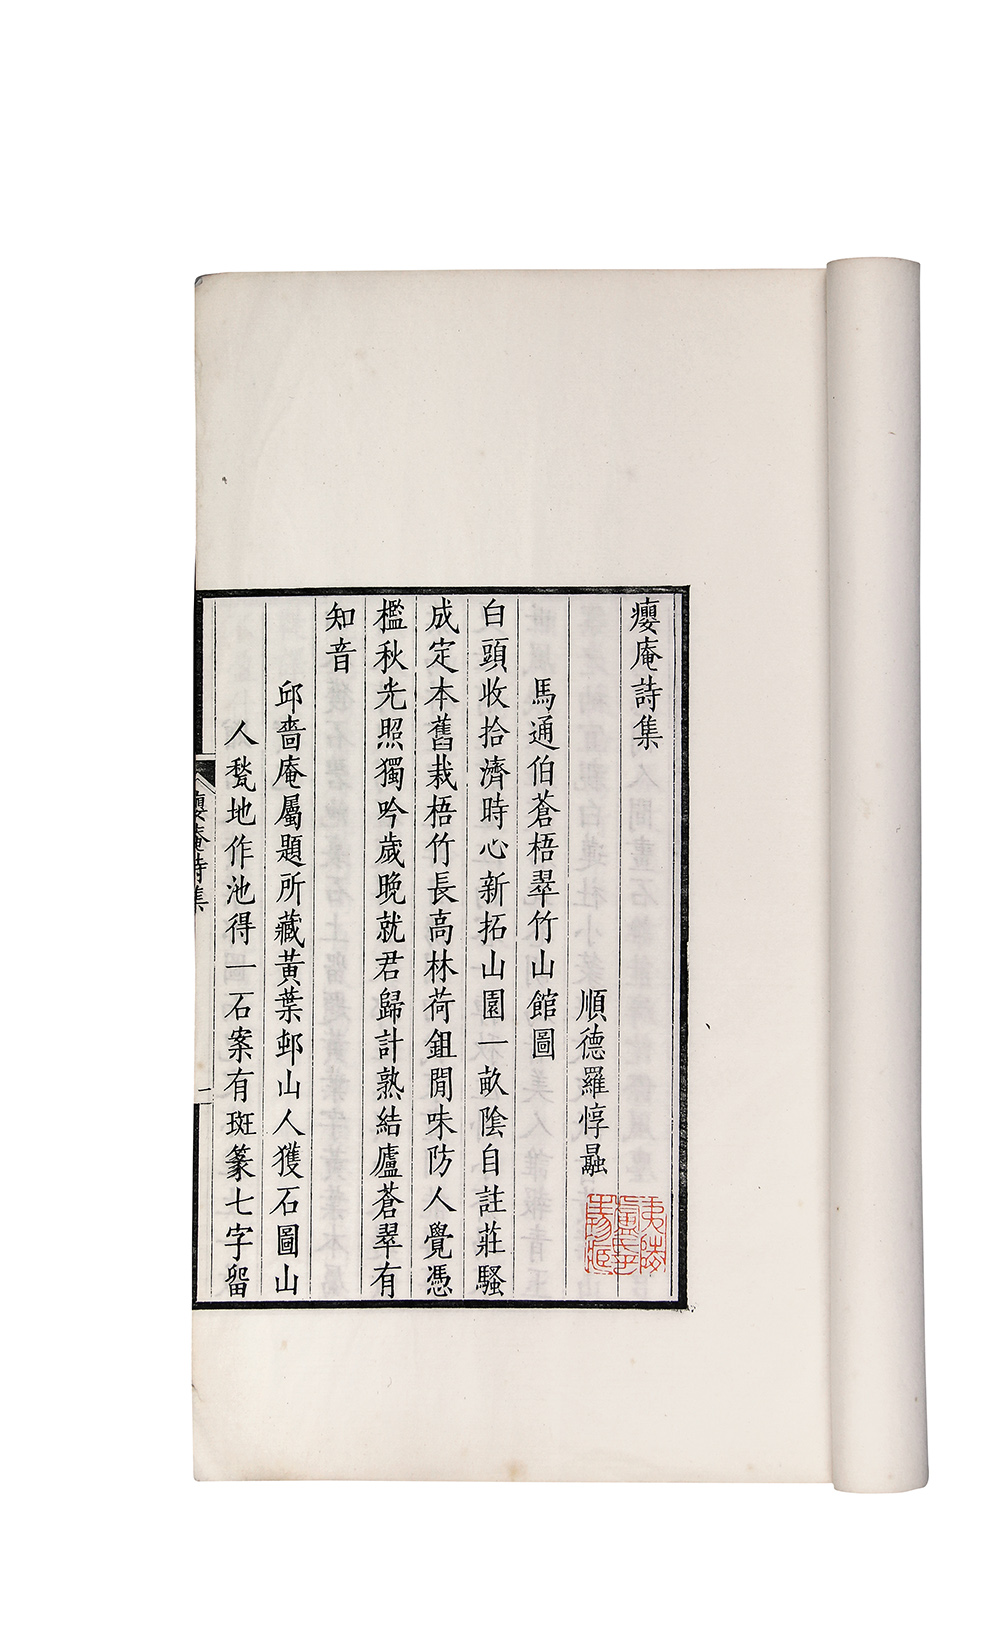 癭庵詩集
順德羅惇曧
馬通伯蒼梧翠竹山館圖
白頭收拾濟時心新拓山園一畝陰自註莊騷
成定本舊栽梧竹長高林荷鉏閒味防人覺憑
檻秋光照獨吟歲晚就君歸計熟結廬蒼翠有
知音
邱嗇庵屬題所藏黃葉邨山人獲石圖山
人甃地作池得一石案有斑篆七字留
癭庵詩集
一